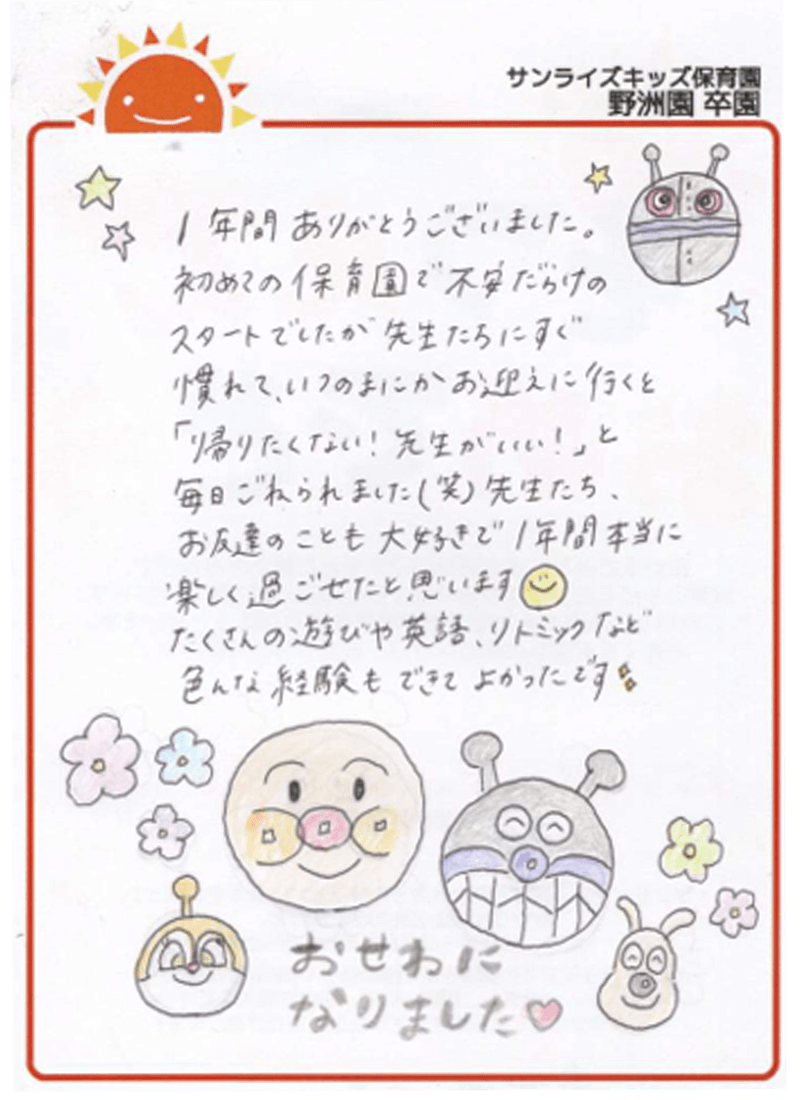 サンライズキッズ保育園
野洲園 卒園
1年間ありがとうございました。
初めての保育園で不安だらけの
スタートでしたが先生たちにすぐ
慣れて、いつのまにかお迎えに行くと
「帰りたくない!先生がいい!」と
毎日ごねられました(笑)先生たち、
お友達のことも大好きで1年間本当に
楽しく過ごせたと思います
たくさんの遊びや英語、リトミックなど
色んな経験もできてよかったです
おせわに
なりました